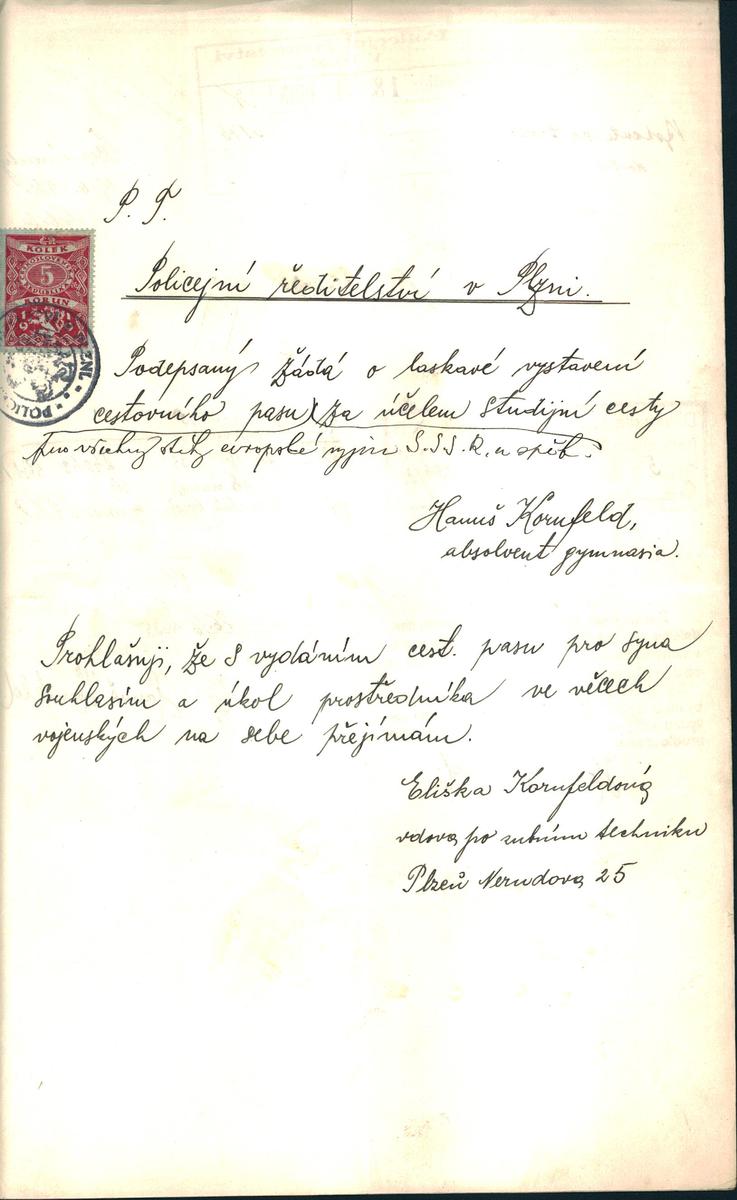 P. T.
KOLEK
ČESKOSLOVENSKÁ
REPUBLIKA
5
KORUN
1919
Policejní ředitelství v Plzni.
Podepsaný žádá o laskavé vystavení
cestovního pasu (za účelem studijní cesty
pro všechny státy evropské vyjm S.S.S.R. a zpět.
Hanuš Kornfeld,
absolvent gymnasia.
Prohlašuji, že s vydáním cest. pasu pro syna
souhlasím a úkol prostředníka ve věcech
vojenských na sebe přejímám.
Eliška Kornfeldová
vdova po zubním techniku
Plzeň Nerudova 25